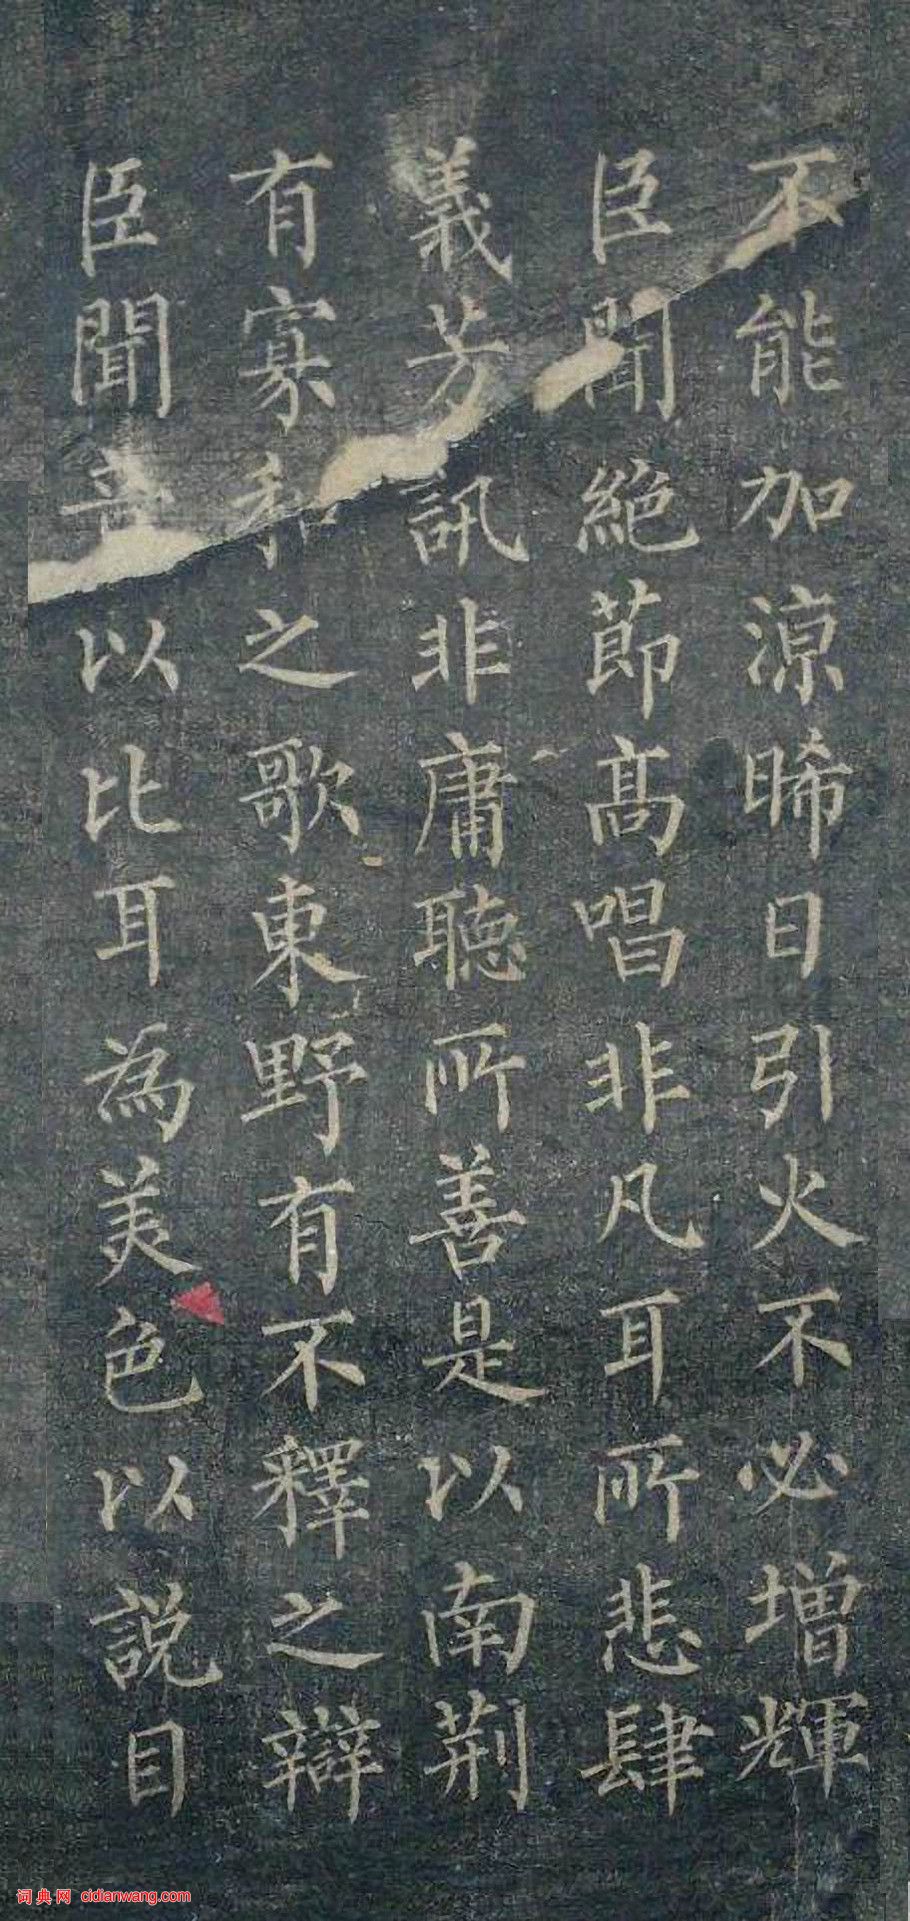 不能加涼晞日引火不必增輝
臣聞絶節髙唱非凡耳所悲肆
義芳訊非庸聴所善是以南荆
有寡和之歌東野有不釋之辯
臣聞音以比耳為美色以説目
词典网 cidianwang.com